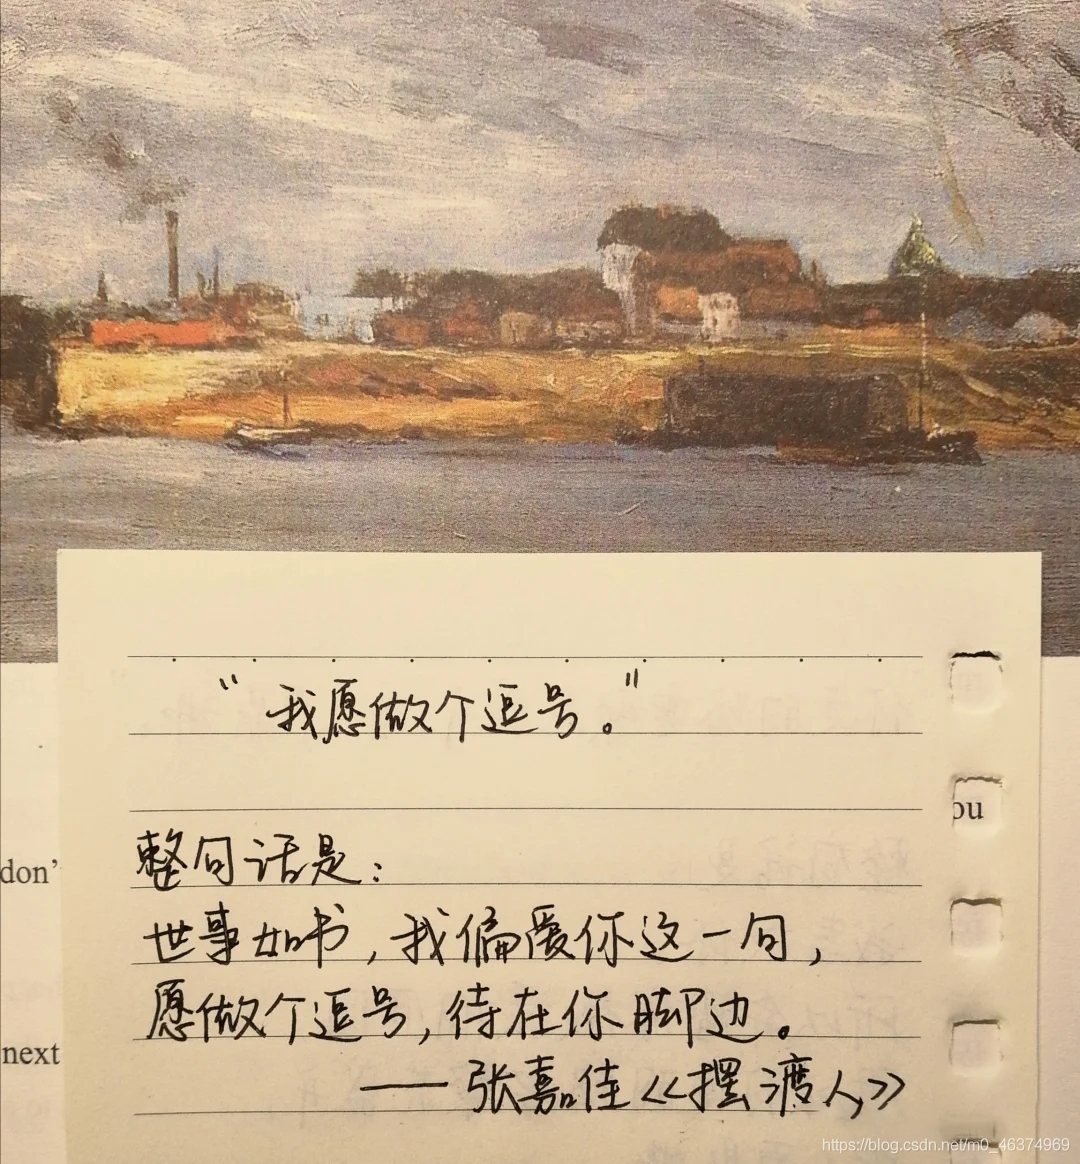 “我愿做个逗号。”
ou
整句话是：
don’
世事如书，我偏爱你这一句，
愿做个逗号，待在你脚边。
next
——张嘉佳《摆渡人》
https://blog.csdn.net/m0_46374969